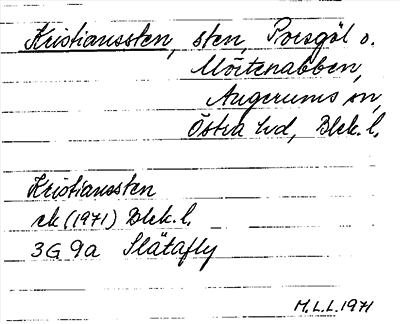 Kristiansten, sten, Porsgöl o.
Mörtenabben,
Augerums sn,
Östra hd, Blek. l.
Kristiansten
ek (1971) Blek. l.
3G 9a Slätafly
M.L.L. 1971